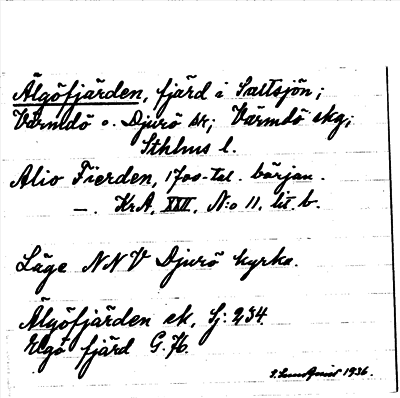 Älgöfjärden, fjärd i Saltsjön;
Värmdö o. Djurö sr; Värmdö skg;
Sthlms l.
Älio Fierden, 1700-tal. början.
—. KrA, XXII, N:o 11, lit. b.
Läge NNV Djurö kyrka.
Älgöfjärden ek, Sj: 234.
Elgö fjärd G. 76.
1936.